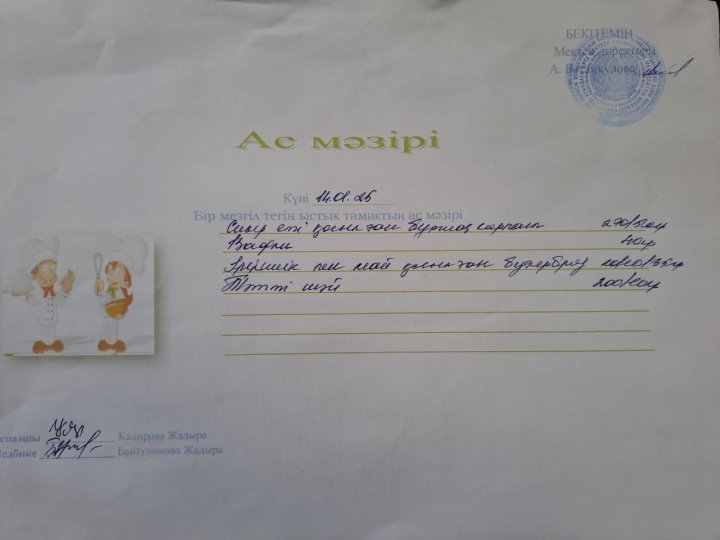 БЕКІТЕМІН
Мектеп директоры
А.
Ас мәзірі
Күні 14.01.26
Бір мезгіл тегін ыстық тамақтың ас мәзірі
Сиыр еті қосылған бұршақ сорпасы
Вафли 40гр
Ірімшік пен май қосылған бутерброд
Тәтті шай
Казирова Жадыра
Байтужанова Жадыра